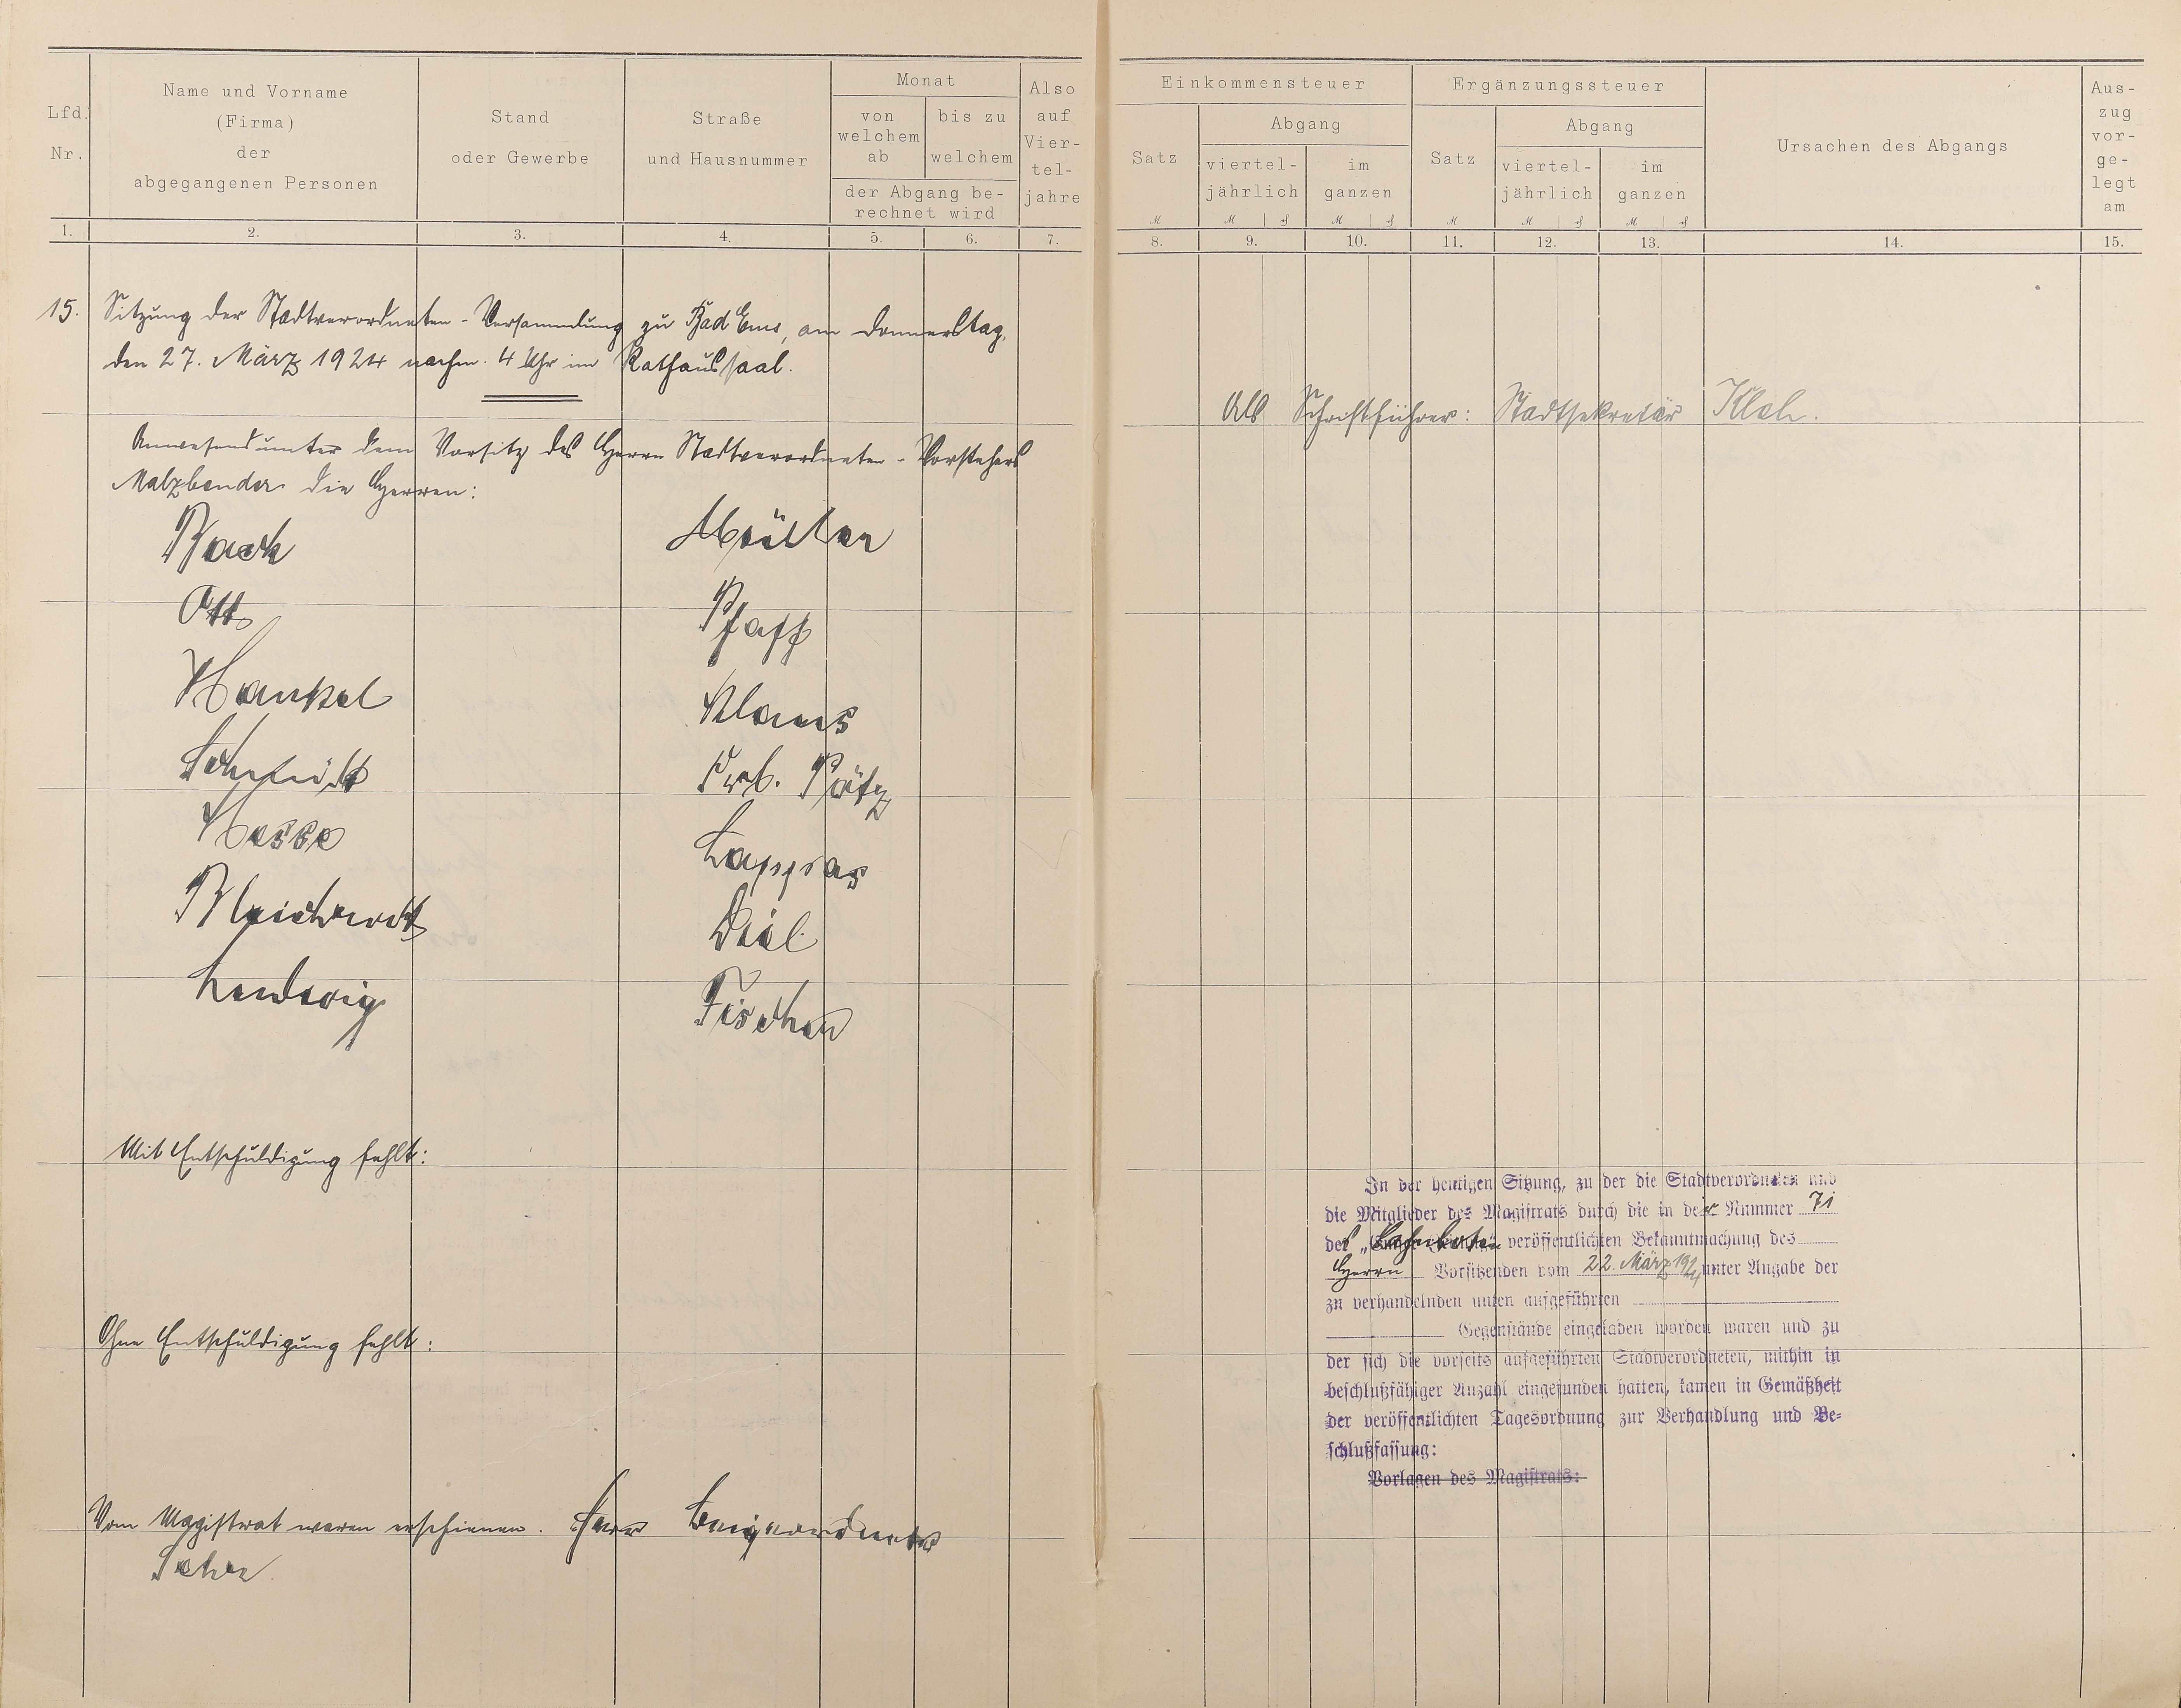 Lfd. Nr.
Name und Vorname
(Firma)
der
abgegangenen Personen
Stand
oder Gewerbe
Straße
und Hausnummer
Monat
von
welchem
ab
bis zu
welchem
der Abgang be-
rechnet wird
Also
auf
Vier-
tel-
jahre
1. 2. 3. 4. 5. 6. 7.
15. Sitzung der Stadtverordneten-Versammlung zu Bad Ems, am Donnerstag,
den 27. März 1924 nachm. 4 Uhr im Rathaussaal.
Anwesend unter dem Vorsitz des Herrn Stadtverordneten-Vorstehers
Malzbender die Herren:
Back
Ott
Hankel
Schmidt
Hesse
Bleichrodt
Ludwig
Müller
Pfaff
Klaus
Pötz
Lappas
Diel
Fischer
Mit Entschuldigung fehlt:
Ohne Entschuldigung fehlt:
Vom Magistrat waren erschienen. Herr Beigeordneter
Einkommensteuer
Satz
Abgang
viertel-
jährlich
im
ganzen
M
M ₰
M ₰
Ergänzungssteuer
Satz
Abgang
viertel-
jährlich
im
ganzen
M
M ₰
M ₰
Ursachen des Abgangs
Aus-
zug
vor-
ge-
legt
am
8. 9. 10. 11. 12. 13. 14. 15.
Als Schriftführer: Stadtsekretär
In der heutigen Sitzung, zu der die Stadtverordneten und
die Mitglieder des Magistrats durch die in der Nummer 71
des „Lahnboten" veröffentlichten Bekanntmachung des
Herrn Vorsitzenden vom 22. März 1924 unter Angabe der
zu verhandelnden unten aufgeführten
Gegenstände eingeladen worden waren und zu
der sich die vorseits aufgeführten Stadtverordneten, mithin in
beschlußfähiger Anzahl eingefunden hatten, kamen in Gemäßheit
der veröffentlichten Tagesordnung zur Verhandlung und Be-
schlußfassung:
Vorlagen des Magistrats: